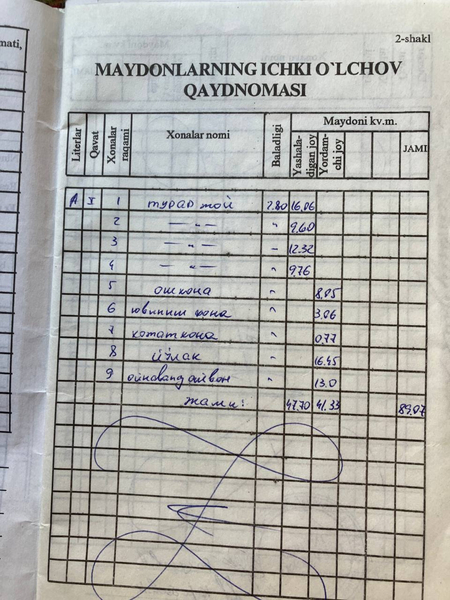 mati,
2-shakl
MAYDONLARNING ICHKI O`LCHOV
QAYDNOMASI
Literlar Qavat Xonalar raqami Xonalar nomi Baladligi Maydoni kv.m.
Yashaladigan joy Yordamchi joy JAMI
A I 1 турар жой 2.80 16.06
2 — " — " 9.60
3 — " — " 12.32
4 — " — " 9.76
5 ошхона " 8.05
6 ювиниш хона " 3.06
7 " 0.77
8 йўлак " 16.45
9 ойнаванд айвон " 13.0
жами: 47.74 41.33 89.07